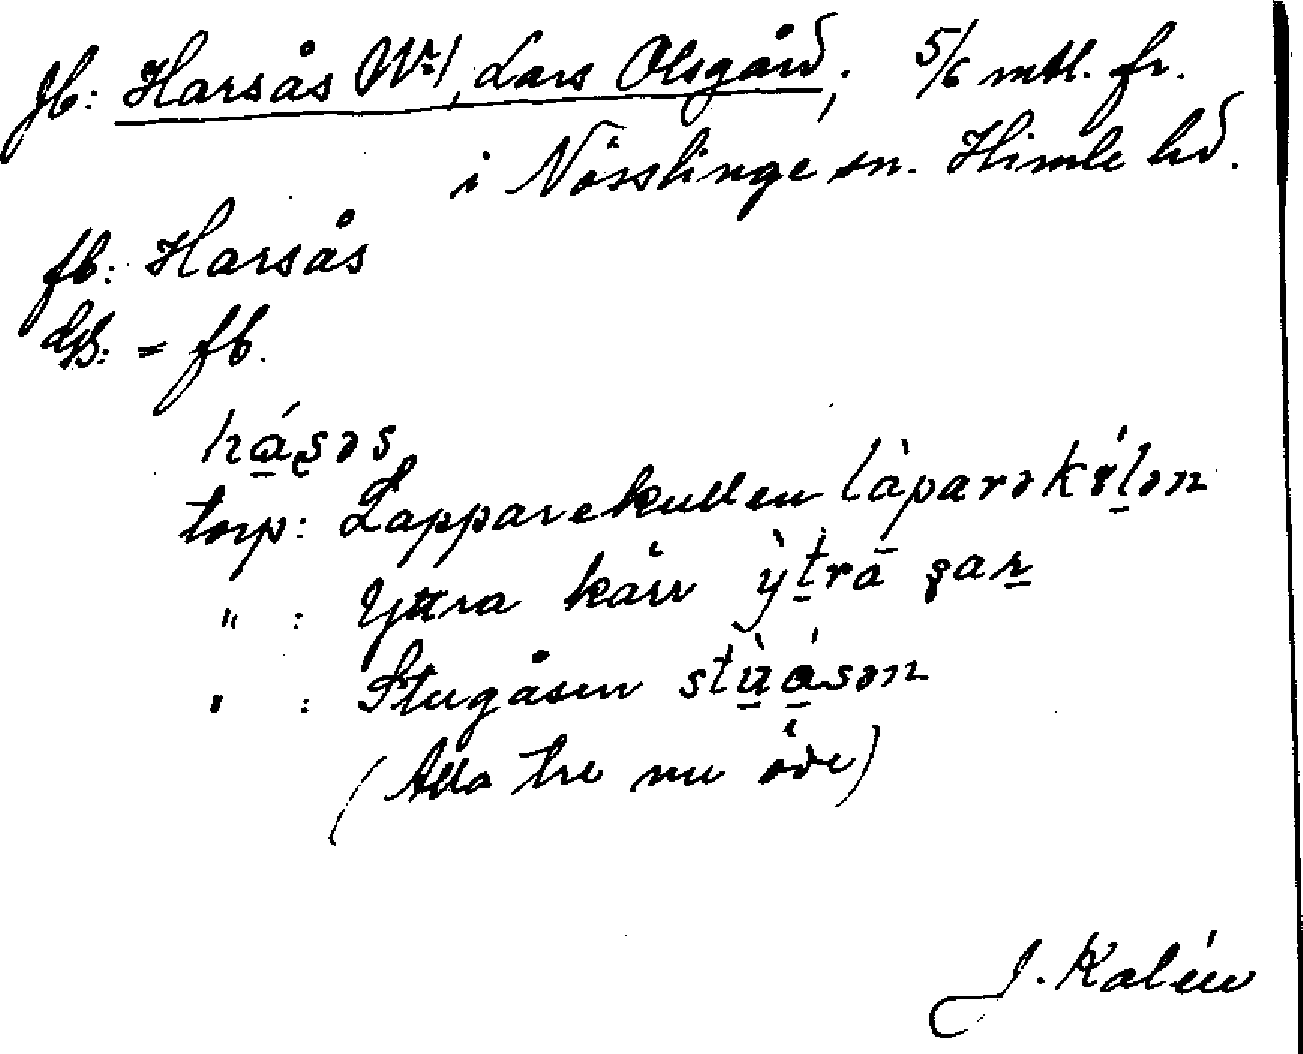 Jb: Harsås Nr 1, Lars Olsgård; 5/6 mtl. fr.
i Nösslinge sn. Himle hd.
fb: Harsås
= fb.
há̱ʂəs
torp: Lapparekullen làparəkúḻən
" : Yttra kärr ỳṯrā ʂaṟ
" : Stugåsen stù̱á̱sən
(Alla tre nu öde)
J. Kalén